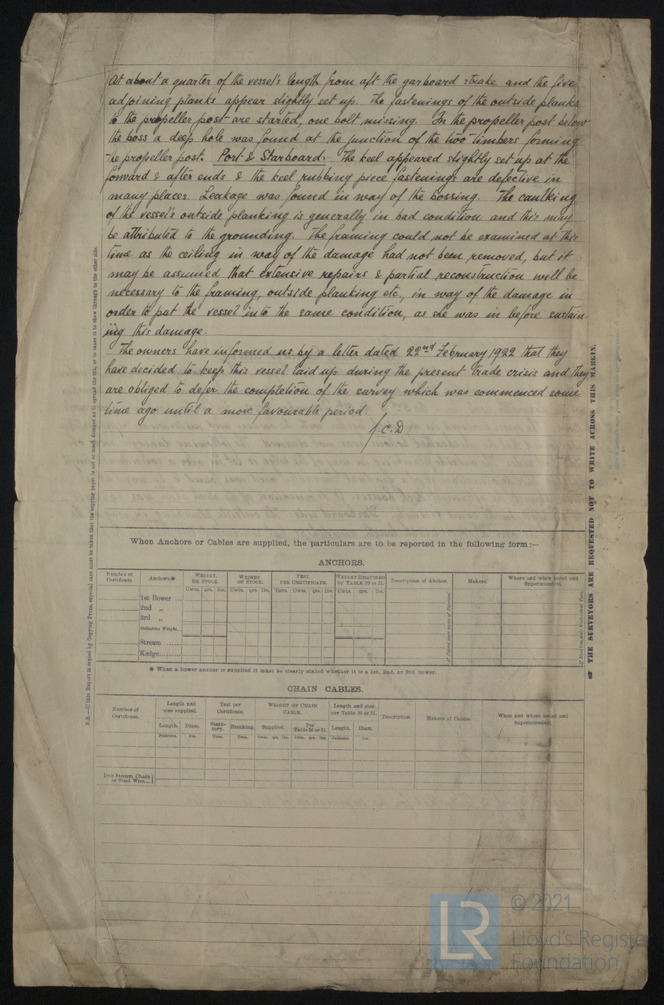 At about a quarter of the vessel's length from aft the garboard strake and the five
adjoining planks appear slightly set up. The fastenings of the outside planks
to the propeller post are started, one bolt missing. In the propeller post below
the boss a deep hole was found at the junction of the two timbers forming
propeller post. Port & Starboard: The keel appeared slightly set up at the
forward & after ends & the keel rubbing piece fastenings are defective in
many places. Leakage was found in way of the bossing. The caulking
of the vessel's outside planking is generally in bad condition and this may
be attributed to the grounding. The framing could not be examined at this
time as the ceiling in way of the damage had not been removed, but it
may be assumed that extensive repairs & partial reconstruction will be
necessary to the framing, outside planking etc., in way of the damage in
order to put the vessel into the same condition, as she was in before sustain
ing this damage.
The owners have informed us by a letter dated 22nd February 1922 that they
have decided to keep this vessel laid up during the present trade crisis and they
are obliged to defer the completion of the survey which was commenced some
time ago until a more favourable period.
J.C.D.
When Anchors or Cables are supplied, the particulars are to be reported in the following form:—
ANCHORS.
Number of Certificate. Anchors.* WEIGHT, EX STOCK. WEIGHT OF STOCK. TEST PER CERTIFICATE. WEIGHT REQUIRED by TABLE 30 or 31. Description of Anchor. Makers. Where and when tested and Superintendent.
Cwts. qrs. lbs. Cwts. qrs. lbs. Tons. Cwts. qrs. lbs. Cwts. qrs. lbs.
1st Bower ...
2nd „
3rd „
Collective Weight.
Stream ......
Kedge.......
* When a bower anchor is supplied it must be clearly stated whether it is a 1st, 2nd, or 3rd bower.
CHAIN CABLES.
Number of Certificate. Length and size supplied. Test per Certificate. WEIGHT OF CHAIN CABLE. Length and size per Table 30 or 31. Description Makers of Cables. When and where tested and Superintendent.
Length. Diam. Statutory. Breaking. Supplied. Per Table 30 or 31 Length. Diam.
Fathoms. Ins. Tons. Tons. Cwts. qrs. lbs. Cwts. qrs. lbs. Fathoms. Ins.
Iron Stream Chain or Steel Wire...
N.B.—If this Report is copied by Copying Press, especial care must be taken that the copying paper is not so much damped as to spread the ink, or to cause it to show through to the other side.
THE SURVEYORS ARE REQUESTED NOT TO WRITE ACROSS THIS MARGIN.
LR
© 2021
Lloyd's Register
Foundation